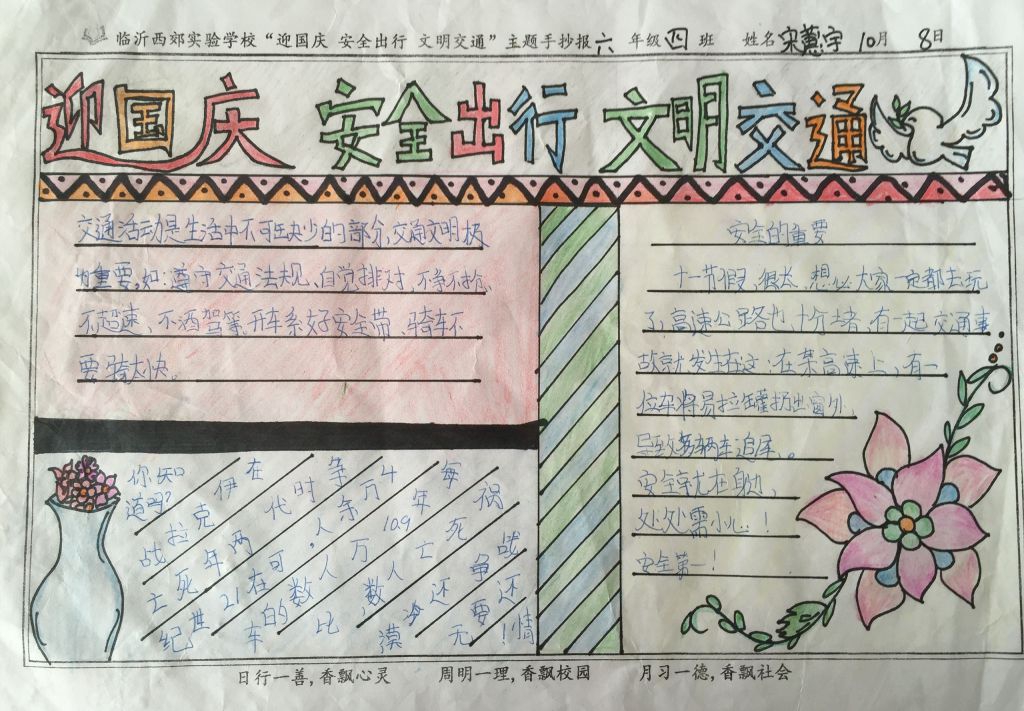 临沂西郊实验学校“迎国庆 安全出行 文明交通”主题手抄报 六 年级 四 班 姓名 宋蕙宇 10月 8日
迎国庆 安全出行 文明交通
交通活动是生活中不可缺少的部分,交通文明极
为重要,如:遵守交通法规、自觉排队、不争不抢、
不超速、不酒驾等、开车系好安全带、骑车不
要骑太快。
你知
道吗?
在伊克拉战
争时代两年死亡
4万余人,可在21世纪
每年109万人数的车
祸死亡人数比
战争还漠
还要无
情!
安全的重要
十一节假、很长、想必大家一定都去玩
了,高速公路也十分堵,有一起交通事
故就发生在这:在某高速上,有一
位车将易拉罐扔出窗外,
导致多辆车追尾。
安全就在身边,
处处需小心!
安全第一!
日行一善,香飘心灵 周明一理,香飘校园 月习一德,香飘社会